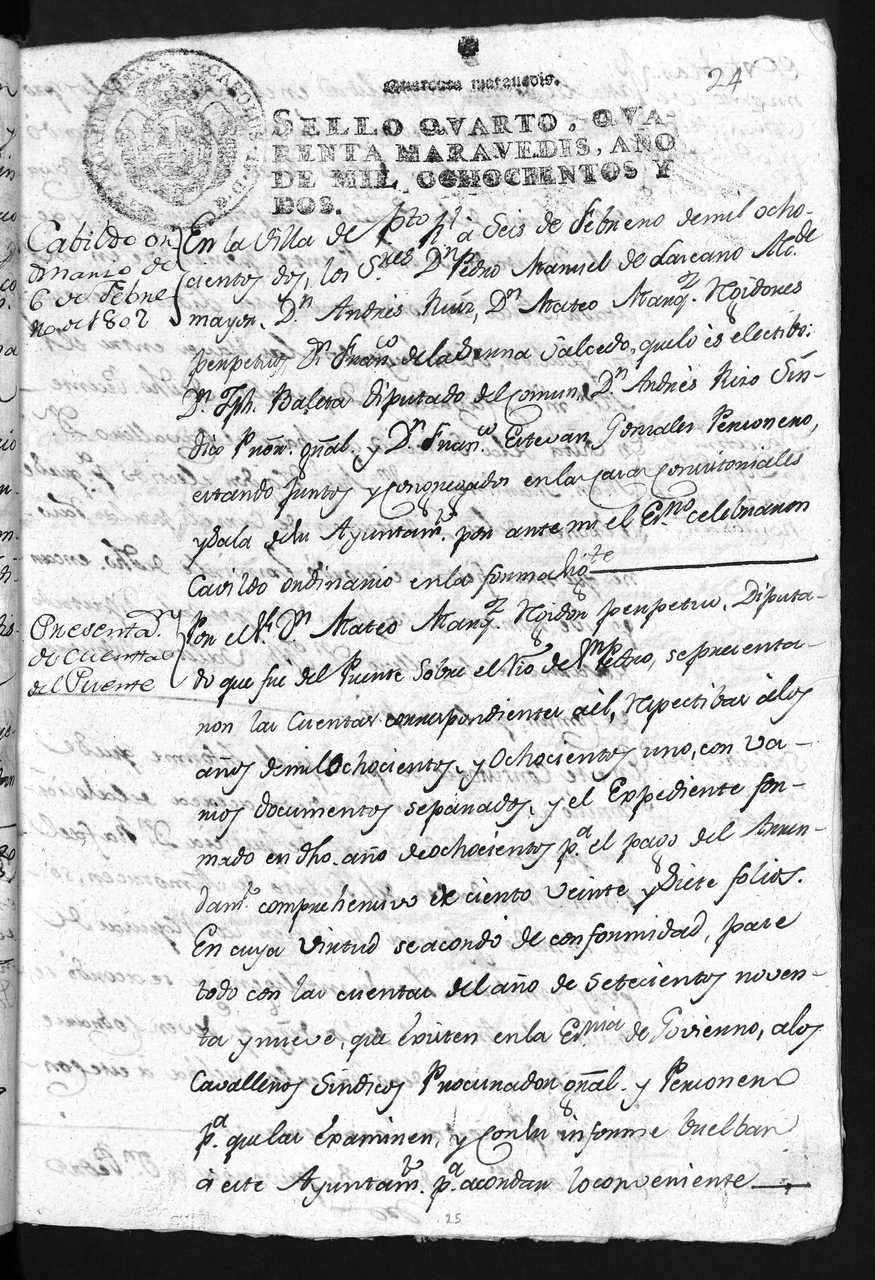 24
Quarenta maravedis.
SELLO QVARTO, QVA-
RENTA MARAVEDIS, AÑO
DE MIL OCHOCIENTOS Y
DOS.
Cabildo or
dinario de
6 de Febre
ro de 1802
En la Villa de Pto Rl à Seis de Febrero de mil ocho-
cientos dos, los S.res D.n Pedro Manuel de Lazcano Alc.de
mayor, D.n Andrés Ruiz, D.n Mateo Marq.z Rexidores
perpetuos, D.n Fran.co de la Serna Salcedo, que lo és electibo:
D.n Jph. Baleta Diputado del Comun, D.n Andrés Rizo Sín-
dico Procur. gñal. y D.n Fran.co Estevan Gonzales Personero,
estando juntos y congregados en las Casas Consistoriales
y Sala de su Ayuntam.to por ante mi el Es.no celebraron
Cavildo ordinario en la forma sig.te
Presentaz.n
de Cuentas
del Puente
Por el S.r D.n Mateo Marq.z Rexidor perpetuo, Diputa-
do que fué del Puente Sobre el Rio de S.n Pedro, se presenta-
ron las Cuentas correspondientes à èl, respectibas à los
años de mil Ochocientos, y Ochocientos uno, con va-
rios documentos separados, y el Expediente for-
mado en dho. año de ochocientos p.a el pago del Arren-
dam.to comprehensivo de ciento veinte y Siete folios.
En cuya virtud se acordó de conformidad, pase
todo con las cuentas del año de Setecientos noven-
ta y nueve, que Existen en la Es.nia de Govierno, a los
Cavalleros Síndicos Procurador gñal. y Personero
p.a que las Examinen, y con su informe buelban
à este Ayuntam.to p.a acordar lo conveniente
25